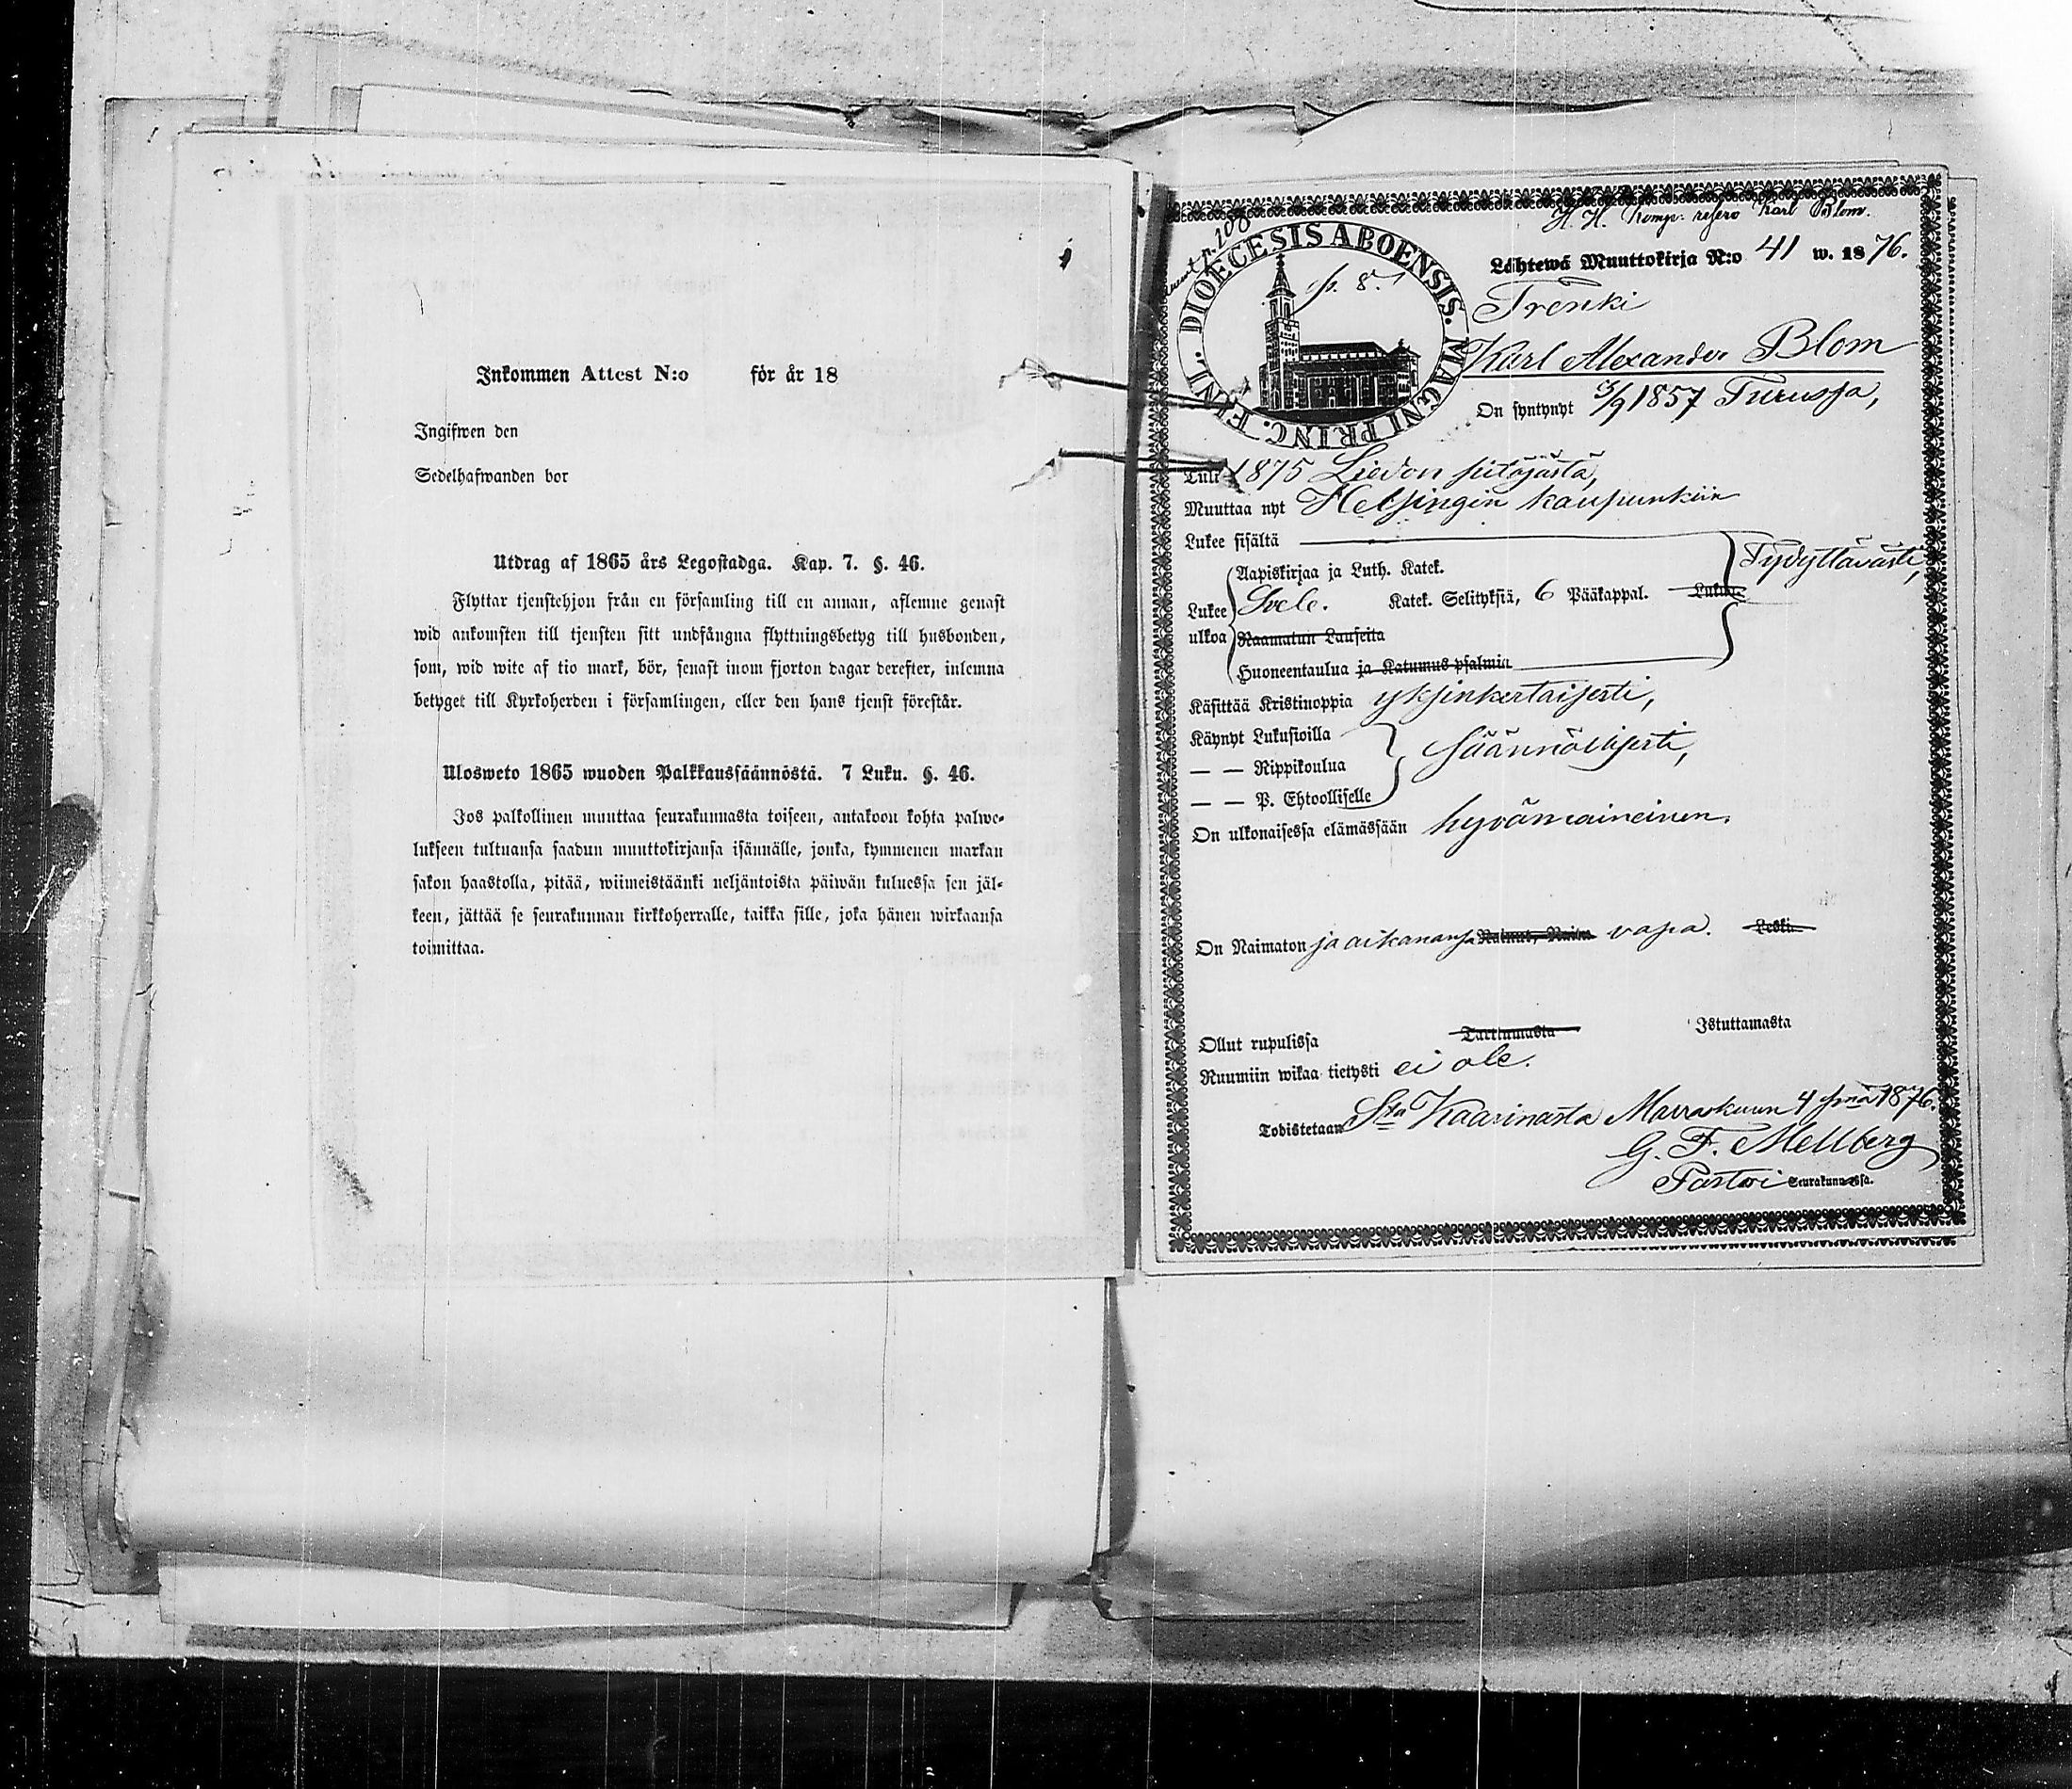 Inkommen Attest N:o för år 18
Ingifwen den
Sedelhafwanden bor
Utdrag af 1865 års Legostadga. Kap. 7. §. 46.
Flyttar tjenstehjon från en församling till en annan, aflemne genast
wid ankomsten till tjensten sitt undfångna flyttningsbetyg till husbonden,
som, wid wite af tio mark, bör, senast inom fjorton dagar derefter, inlemna
betyget till Kyrkoherden i församlingen, eller den hans tjenst förestår.
Ulosweto 1865 wuoden Palkkaussäännöstä. 7 Luku. §. 46.
Jos palkollinen muuttaa seurakunnasta toiseen, antakoon kohta palwe-
lukseen tultuansa saadun muuttokirjansa isännälle, jonka, kymmenen markan
sakon haastolla, pitää, wiimeistäänki neljäntoista päiwän kuluessa sen jäl-
keen, jättää se seurakunnan kirkkoherralle, taikka sille, joka hänen wirkaansa
toimittaa.
H. H. Komp. Karl Blom.
p. 108
DIOECESIS ABOENSIS. MAGNI PRINC. FINL.
p. 8.
Lähtewä Muuttokirja N:o 41 w. 1876.
Trenki
Karl Alexander Blom
On syntynyt 3/9 1857 Turussa,
Tuli 1875 Liedon pitäjästä,
Muuttaa nyt Helsingin kaupunkiin
Lukee sisältä
Tydyttävästi,
Aapiskirjaa ja Luth. Katek.
Lukee Svele. Katek. Selityksiä, 6 Pääkappal. Lukua
ulkoa Raamatun Lauseita
Huoneentaulua ja Katumus-psalmia
Käsittää Kristinoppia yksinkertaisesti,
Käynyt Lukusioilla
säännöllisesti,
— — Rippikoulua
— — P. Ehtoolliselle
On ulkonaisessa elämässään hyvämaineinen.
On Naimaton ja aikanansa vapa. Leski
Ollut rupulissa Tarttumasta Istuttamasta
Ruumiin wikaa tietysti ei ole.
Todistetaan Sta Kaarinasta Marraskuun 4 pnä 1876.
G. F. Mellberg
Pastori Seurakunnassa.